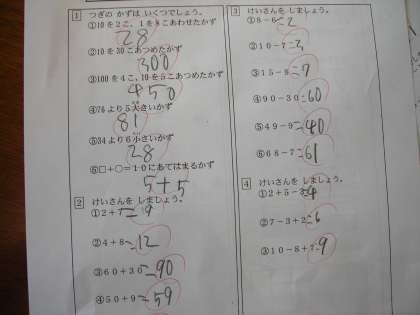 1 つぎの かずは いくつでしょう。
①10を2こ、1を8こあわせたかず
28
②10を30こあつめたかず
300
③100を4こ、10を5こあつめたかず
450
④76より5大きいかず
81
⑤34より6小さいかず
28
⑥□+○=10にあてはまるかず
5+5
2 けいさんを しましょう。
①2+7=9
②4+8=12
③60+30=90
④50+9=59
3 けいさんを しましょう。
①8-6=2
②10-7=3
③15-8=7
④90-30=60
⑤49-9=40
⑥68-7=61
4 けいさんを しましょう。
①2+5-3=4
②7-3+2=6
③10-8+7=9